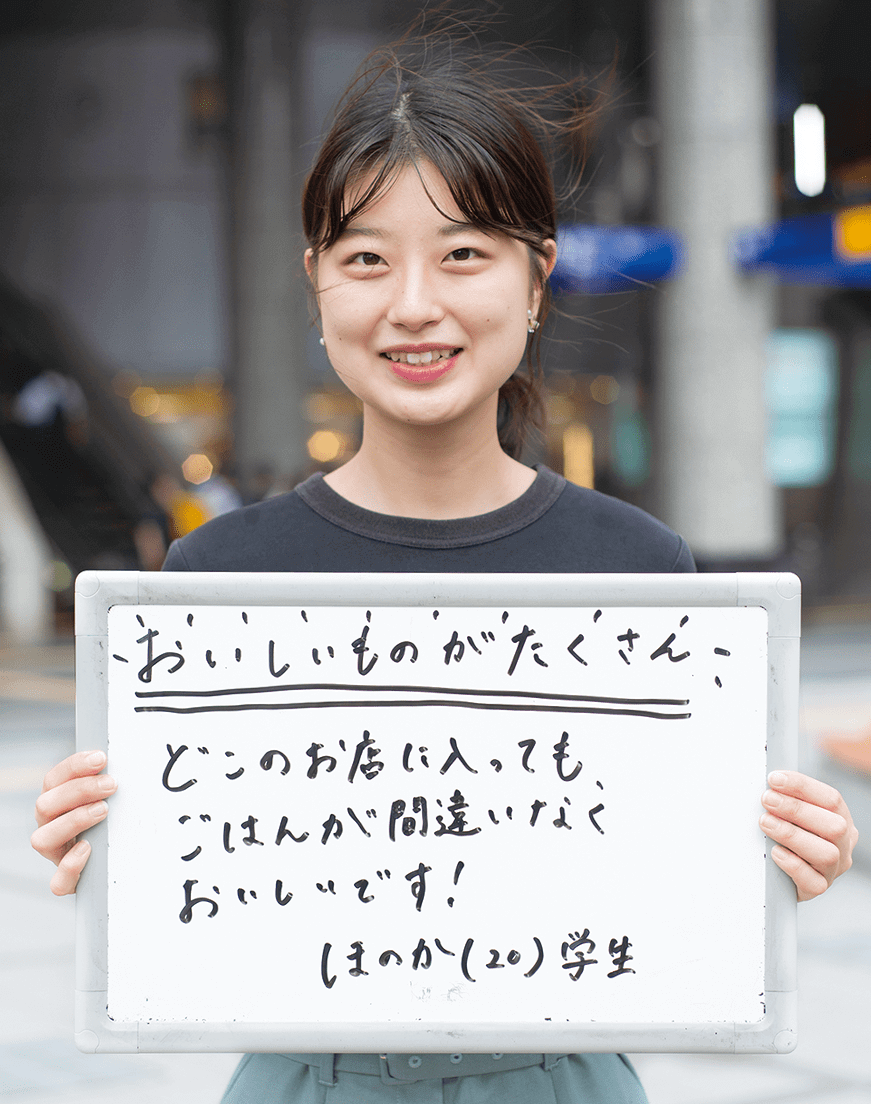 おいしいものがたくさん
どこのお店に入っても、
ごはんが間違いなく
おいしいです!
ほのか(20)学生